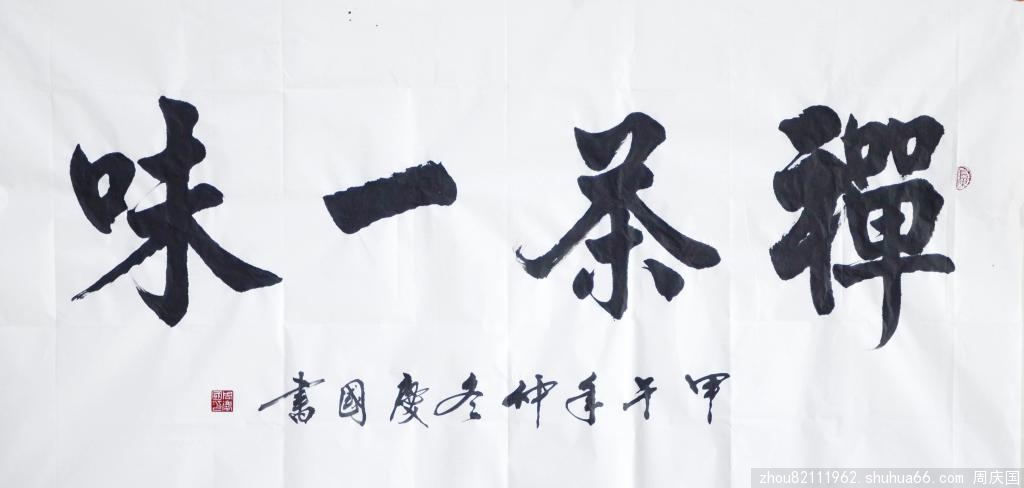 禪茶一味
甲午年仲冬慶國書
zhou82111962.shuhua66.com 周庆国